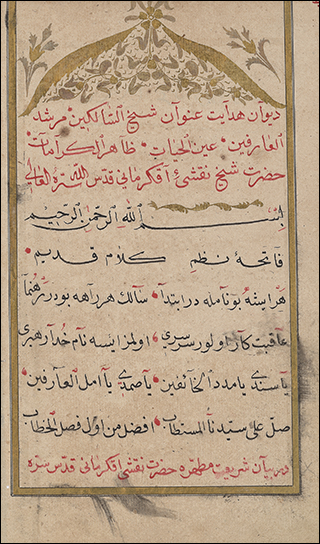 ديوان هدايت عنوان شيخ السالكين مرشد
العارفين عين الحيات ظاهر الكرامات
حضرت شيخ نقشئ اقكرماني قدس الله سره العالي
بسم الله الرحمن الرحيم
فاتحهٔ نظم كلام قديم
هر ايشه بو نامله در ابتدا سالك هر راهه بودر رهنما
عاقبت كار اولور سرسري اولمز ايسه نام خدا رهبري
يا سندي يا مدد الخائفين يا صمدي يا امل العارفين
صل على سيدنا المستطاب افضل من اوتى فصل الخطاب
در بيان شريعت مطهره حضرت نقشي اقكرماني قدس سره